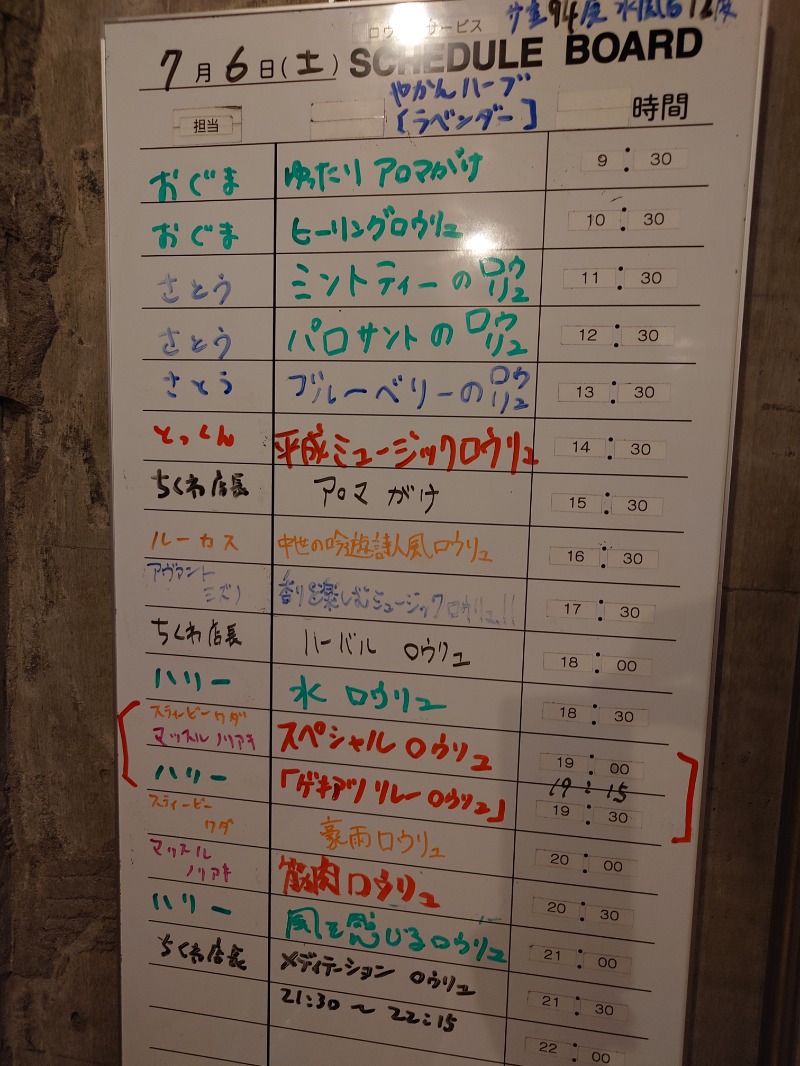 サ室94度 水風呂12度
ロウ サービス
7月6日(土) SCHEDULE BOARD
やかんハーブ
[ラベンダー]
担当 時間
おぐま ゆったりアロマがけ 9:30
おぐま ヒーリングロウリュ 10:30
さとう ミントティーのロウリュ 11:30
さとう パロサントのロウリュ 12:30
さとう ブルーベリーのロウリュ 13:30
とっくん 平成ミュージックロウリュ 14:30
ちくわ店長 アロマがけ 15:30
ルーカス 中世の吟遊詩人風ロウリュ 16:30
アヴァントミズノ 香りを楽しむミュージックロウリュ!! 17:30
ちくわ店長 ハーバル ロウリュ 18:00
ハリー 水 ロウリュ 18:30
スティービーワダ
マッスルノリアキ スペシャルロウリュ 19:00
19:15
ハリー 「ゲキアツリレーロウリュ」 19:30
スティービーワダ 豪雨ロウリュ 20:00
マッスルノリアキ 筋肉ロウリュ 20:30
ハリー 風を感じるロウリュ 21:00
ちくわ店長 メディテーション ロウリュ 21:30
21:30～22:15
22:00